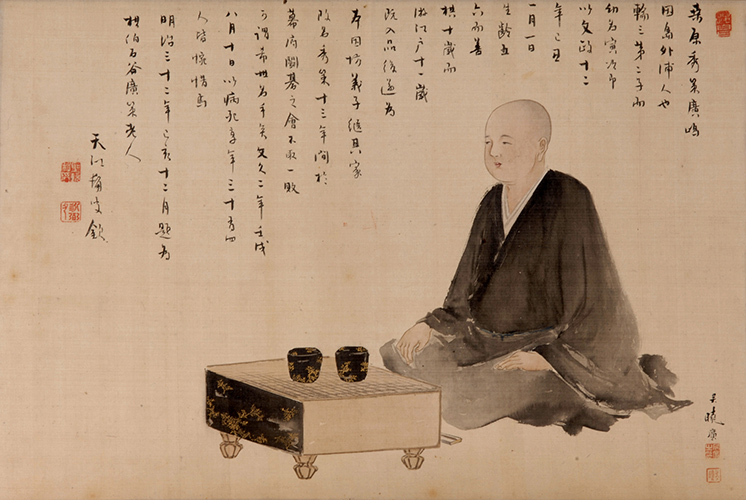 桑原秀策廣嶋
因島外浦人也
輪三第二子而
幼為寅次郎
以文政十二
年己丑
一月一日
生齢五
六而善
棋十歳而
游江戸十一歳
既入品後遂為
本因坊義子継其家
改名秀策十三年間於
幕府開碁之會不取一敗
可謂希世手矣文久二年壬戌
八月十日以病死享年三十有四
人皆惜焉
明治三十二年己亥十二月題為
棋伯石谷廣策老人
天江史欽